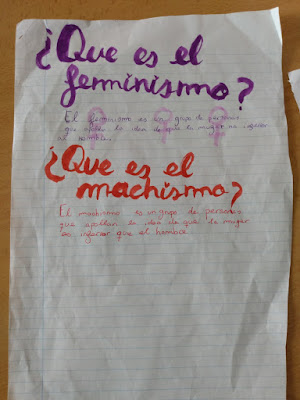 ¿Que es el
feminismo?
El feminismo es un grupo de personas
que apollan la idea de que la mujer no
el hombre.
¿Que es el
machismo?
El machismo es un grupo de personas
que apollan la idea de que la mujer
es inferior que el hombre.